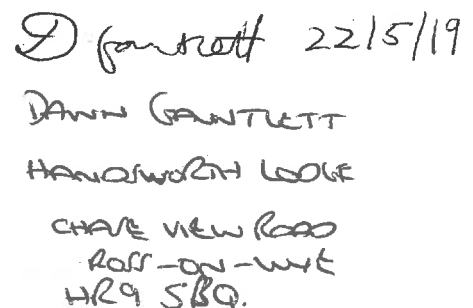 D Gauntlett 22/5/19
DAWN GAUNTLETT
HANDSWORTH LODGE
CHASE VIEW ROAD
ROSS-ON-WYE
HR9 5BQ.